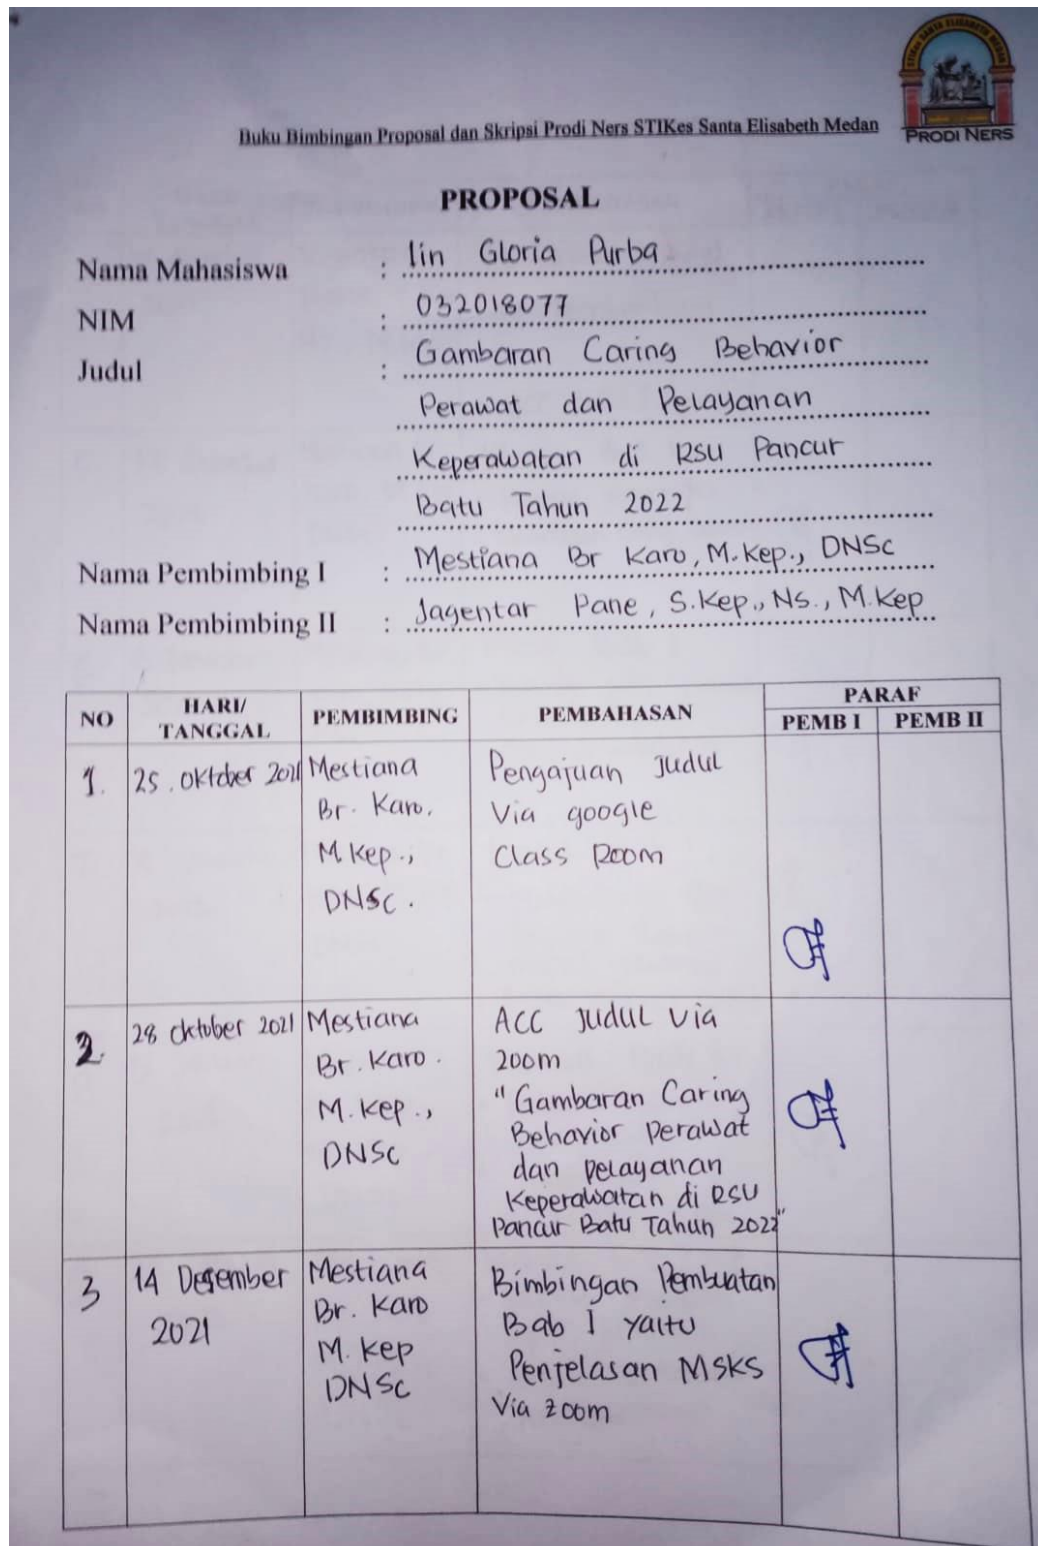 Buku Bimbingan Proposal dan Skripsi Prodi Ners STIKes Santa Elisabeth Medan
PRODI NERS
PROPOSAL
Nama Mahasiswa : Iin Gloria Purba
NIM : 032018077
Judul : Gambaran Caring Behavior
Perawat dan Pelayanan
Keperawatan di RSU Pancur
Batu Tahun 2022
Nama Pembimbing I : Mestiana Br Karo, M.Kep., DNSc
Nama Pembimbing II : Jagentar Pane, S.Kep., Ns., M.Kep
NO HARI/ TANGGAL PEMBIMBING PEMBAHASAN PARAF
PEMB I PEMB II
1. 25. Oktober 2021 Mestiana Pengajuan Judul
Br. Karo, Via google
M Kep., Class Room
DNSc.
2. 28 Oktober 2021 Mestiana ACC Judul Via
Br. Karo. zoom
M. Kep., "Gambaran Caring
DNSc Behavior Perawat
dan pelayanan
Keperawatan di RSU
Pancur Batu Tahun 2022"
3 14 Desember Mestiana Bimbingan Pembuatan
2021 Br. Karo Bab I yaitu
M. Kep Penjelasan MSKS
DNSc Via zoom